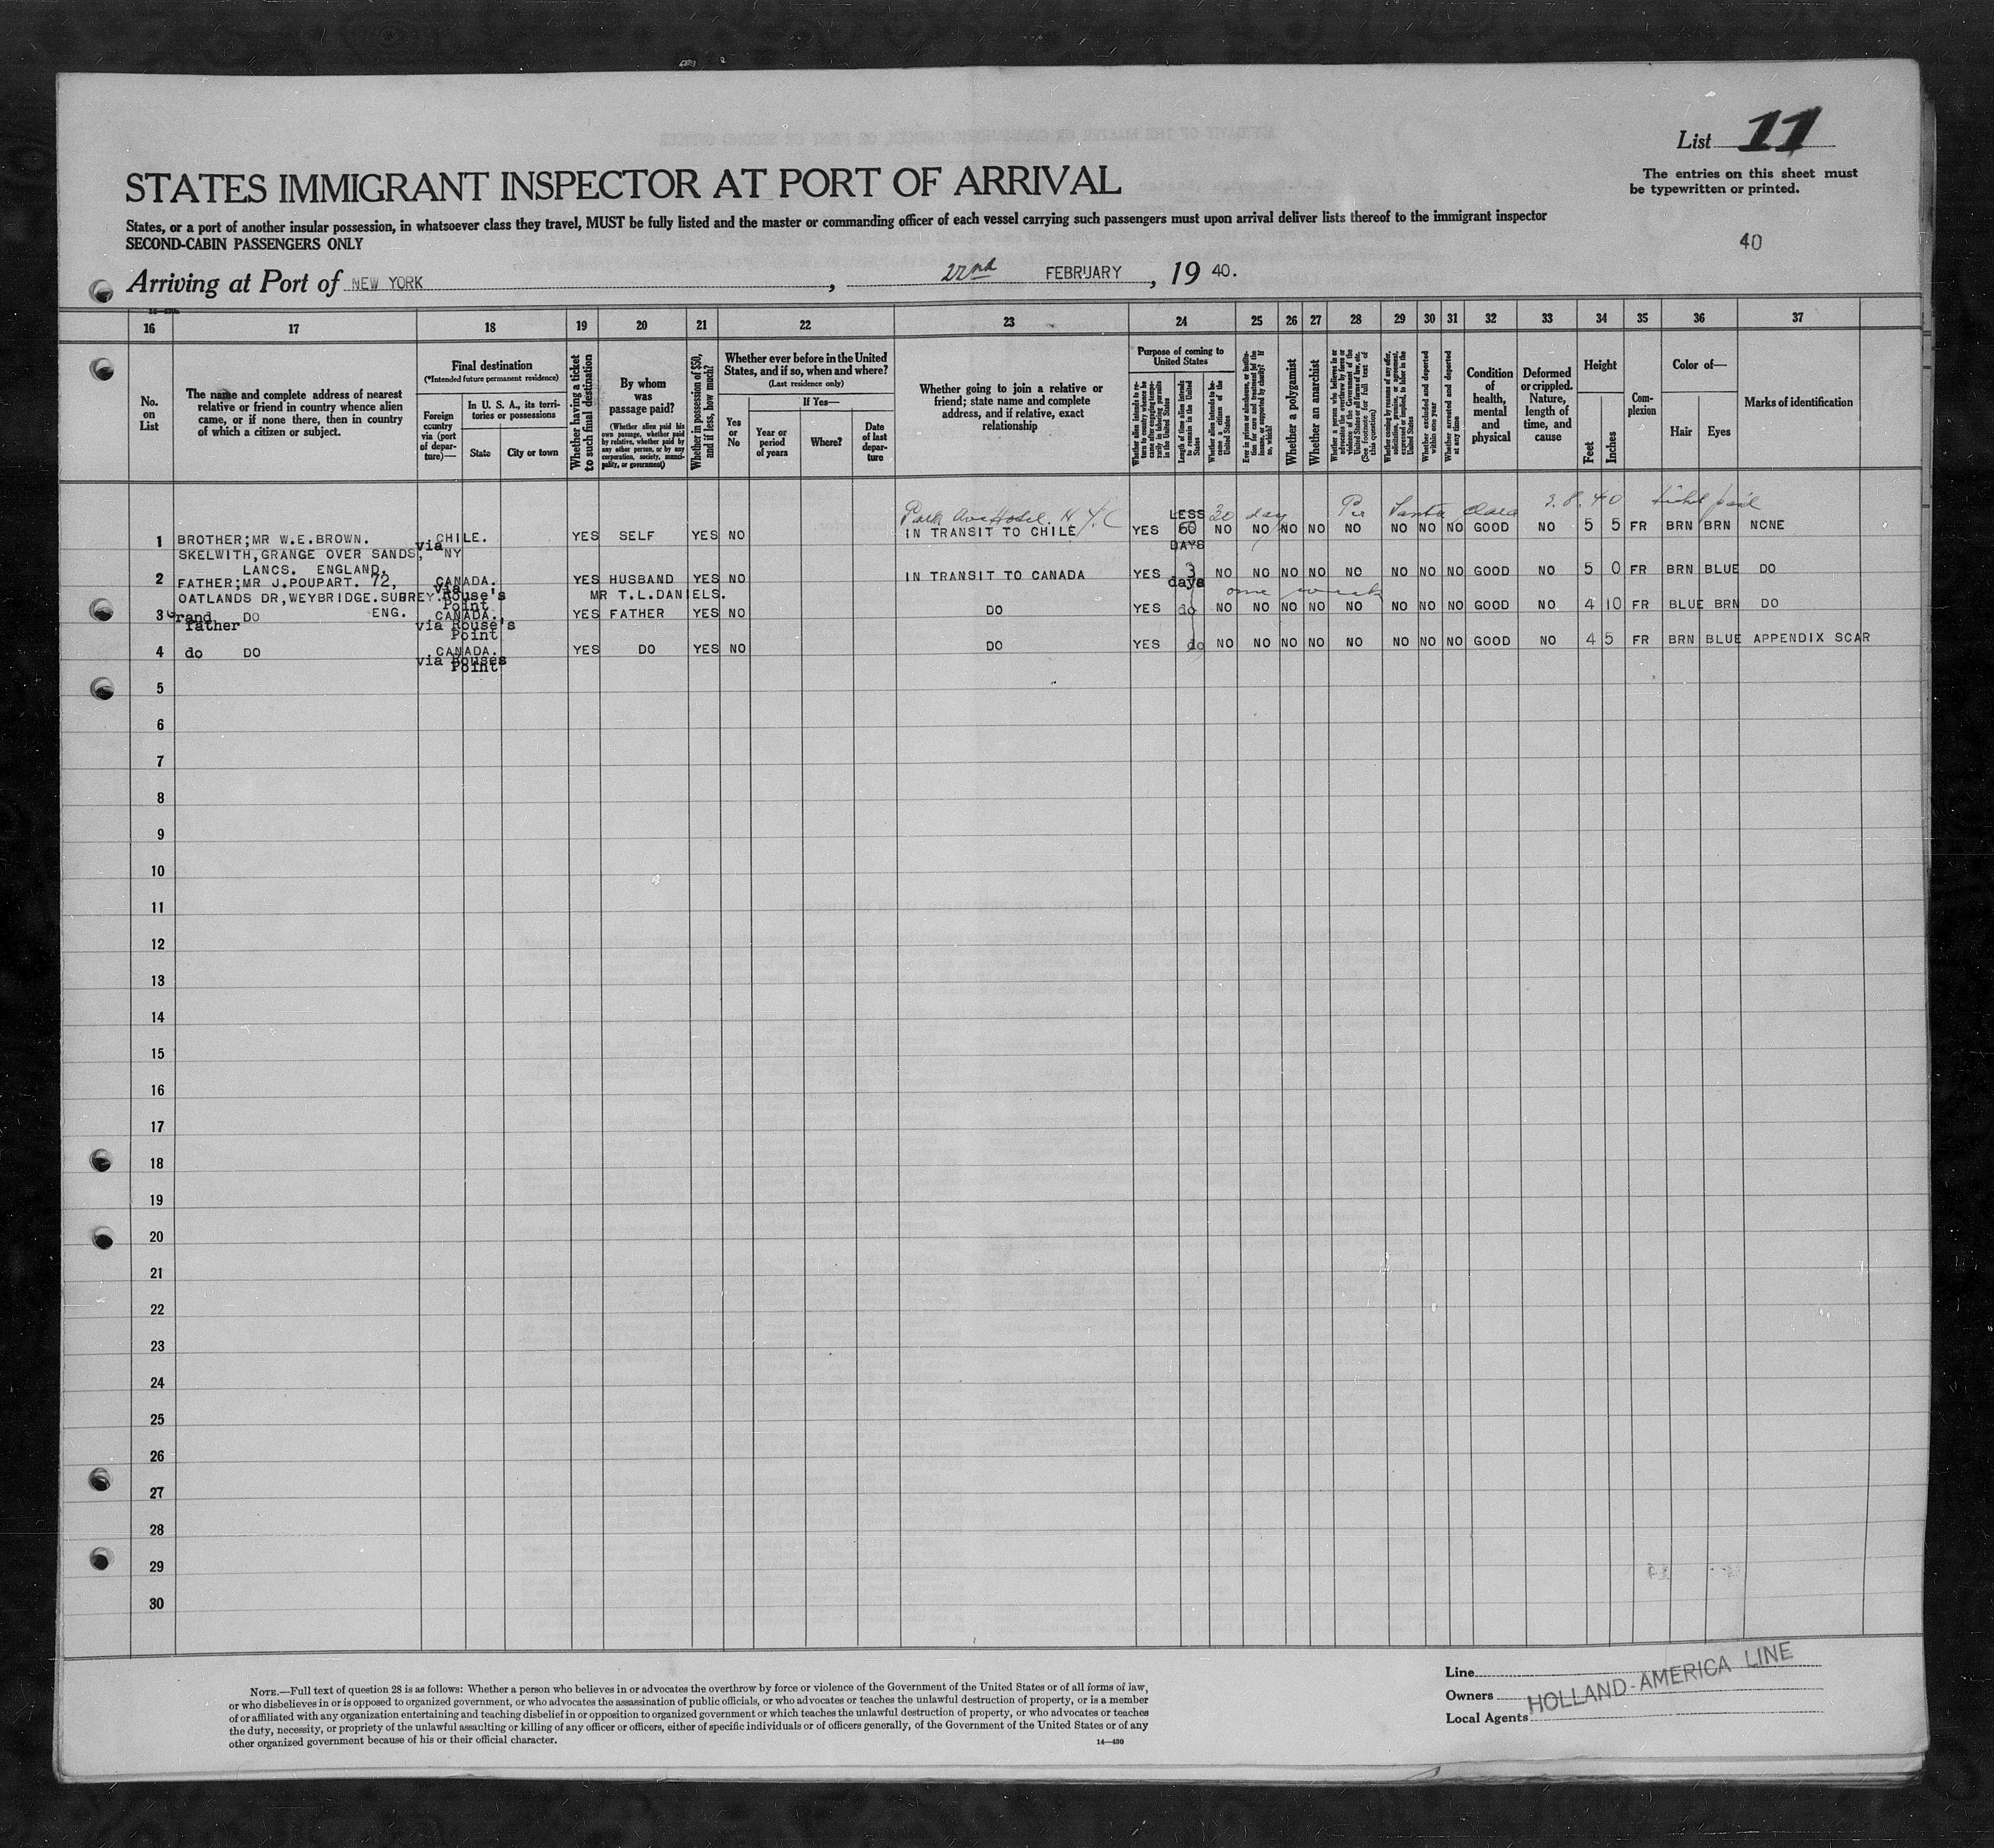 List 11
The entries on this sheet must
be typewritten or printed.
STATES IMMIGRANT INSPECTOR AT PORT OF ARRIVAL
States, or a port of another insular possession, in whatsoever class they travel, MUST be fully listed and the master or commanding officer of each vessel carrying such passengers must upon arrival deliver lists thereof to the immigrant inspector
SECOND-CABIN PASSENGERS ONLY
40
Arriving at Port of NEW YORK, 22nd FEBRUARY, 19 40.
16 17 18 19 20 21 22 23 24 25 26 27 28 29 30 31 32 33 34 35 36 37
No. on List
The name and complete address of nearest relative or friend in country whence alien came, or if none there, then in country of which a citizen or subject.
Final destination
(*Intended future permanent residence)
Foreign country via (port of departure)—
In U. S. A., its territories or possessions
State
City or town
Whether having a ticket to such final destination
By whom was passage paid?
(Whether alien paid his own passage, whether paid by relative, whether paid by any other person, or by any corporation, society, municipality, or government)
Whether in possession of $50, and if less, how much?
Whether ever before in the United States, and if so, when and where?
(Last residence only)
Yes or No
If Yes—
Year or period of years
Where?
Date of last departure
Whether going to join a relative or friend; state name and complete address, and if relative, exact relationship
Purpose of coming to United States
Whether alien intends to return to country whence he came after engaging temporarily in laboring pursuits in the United States
Length of time alien intends to remain in the United States
Whether alien intends to become a citizen of the United States
Ever in prison or almshouse, or institution for care and treatment of the insane, or supported by charity? If so, which?
Whether a polygamist
Whether an anarchist
(See footnote for full text of this question)
Whether excluded and deported within one year
Whether arrested and deported at any time
Condition of health, mental and physical
Deformed or crippled. Nature, length of time, and cause
Height
Feet
Inches
Complexion
Color of—
Hair
Eyes
Marks of identification
Park Ave Hotel. N.Y.C LESS 30 day Per Santa Clara 3.8.40
1 BROTHER;MR W.E.BROWN. CHILE. YES SELF YES NO IN TRANSIT TO CHILE YES 60 NO NO NO NO NO NO NO NO GOOD NO 5 5 FR BRN BRN NONE
SKELWITH,GRANGE OVER SANDS, via NY DAYS
LANCS. ENGLAND.
2 FATHER;MR J.POUPART. 72, CANADA. YES HUSBAND YES NO IN TRANSIT TO CANADA YES 3 NO NO NO NO NO NO NO NO GOOD NO 5 0 FR BRN BLUE DO
OATLANDS DR,WEYBRIDGE.SURREY. via Rouse's Point MR T.L.DANIELS. days one week
ENG.
3 Grand father DO CANADA. YES FATHER YES NO DO YES do NO NO NO NO NO NO NO NO GOOD NO 4 10 FR BLUE BRN DO
via Rouse's Point
4 do DO CANADA. YES DO YES NO DO YES do NO NO NO NO NO NO NO NO GOOD NO 4 5 FR BRN BLUE APPENDIX SCAR
via Rouses Point
5
6
7
8
9
10
11
12
13
14
15
16
17
18
19
20
21
22
23
24
25
26
27
28
29
30
NOTE.—Full text of question 28 is as follows: Whether a person who believes in or advocates the overthrow by force or violence of the Government of the United States or of all forms of law,
or who disbelieves in or is opposed to organized government, or who advocates the assassination of public officials, or who advocates or teaches the unlawful destruction of property, or is a member
of or affiliated with any organization entertaining and teaching disbelief in or opposition to organized government or which teaches the unlawful destruction of property, or who advocates or teaches
the duty, necessity, or propriety of the unlawful assaulting or killing of any officer or officers, either of specific individuals or of officers generally, of the Government of the United States or of any
other organized government because of his or their official character.
14—430
Line
Owners HOLLAND-AMERICA LINE
Local Agents